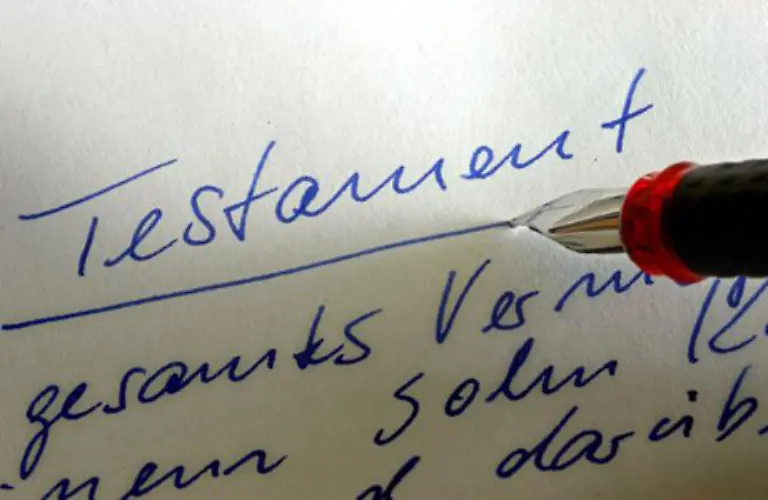 Testament
gesamtes Verm
meinem Sohn K
d darüb